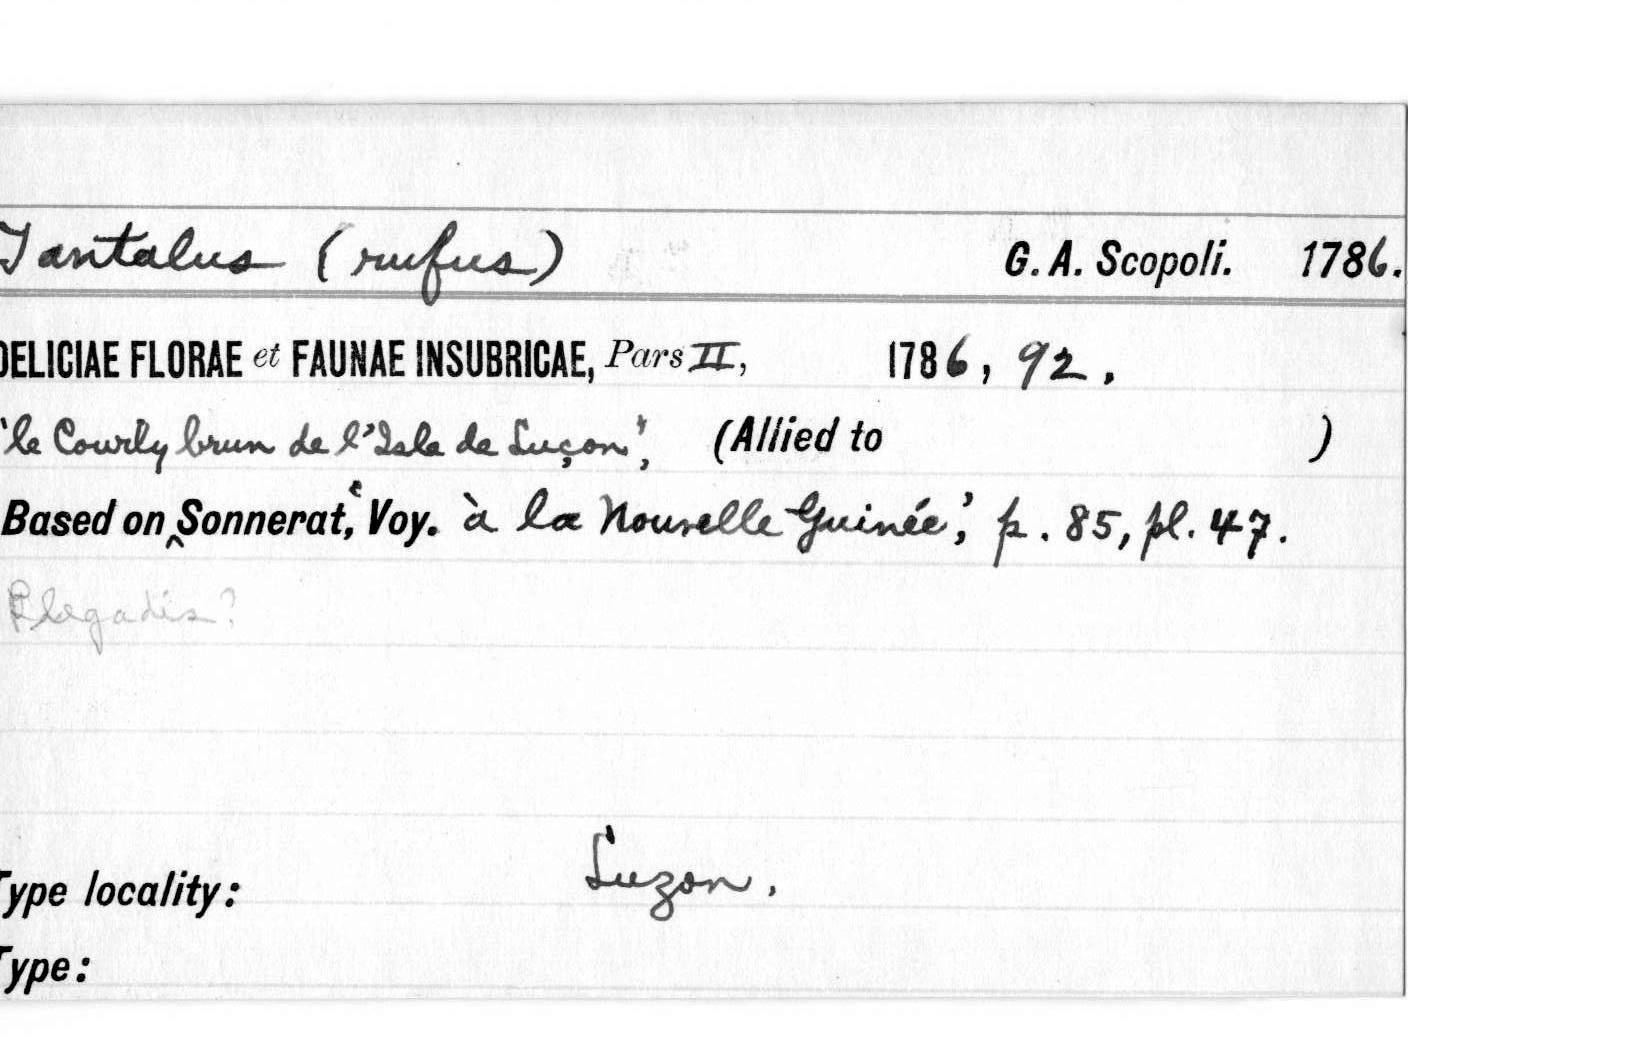 Tantalus (rufus) G. A. Scopoli. 1786.
DELICIAE FLORAE et FAUNAE INSUBRICAE, Pars II, 1786, 92.
'le Courly brun de l'Isle de Luçon', (Allied to )
Based on ‸Sonnerat, 'Voy. à la Nouvelle Guinée', p. 85, pl. 47.
Plegadis?
Type locality: Luzon.
Type: